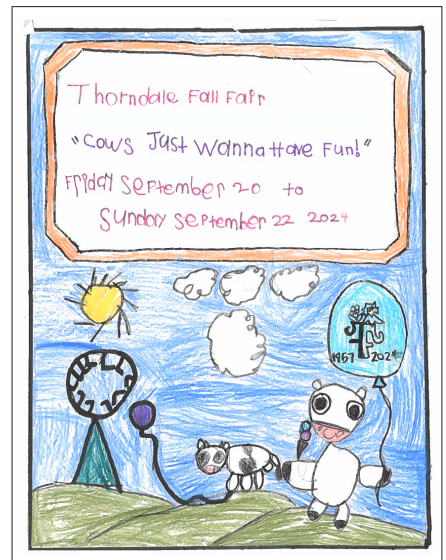 Thorndale Fall Fair
"Cows Just Wanna Have Fun!"
Friday September 20 to
Sunday September 22 2024
1957 2024